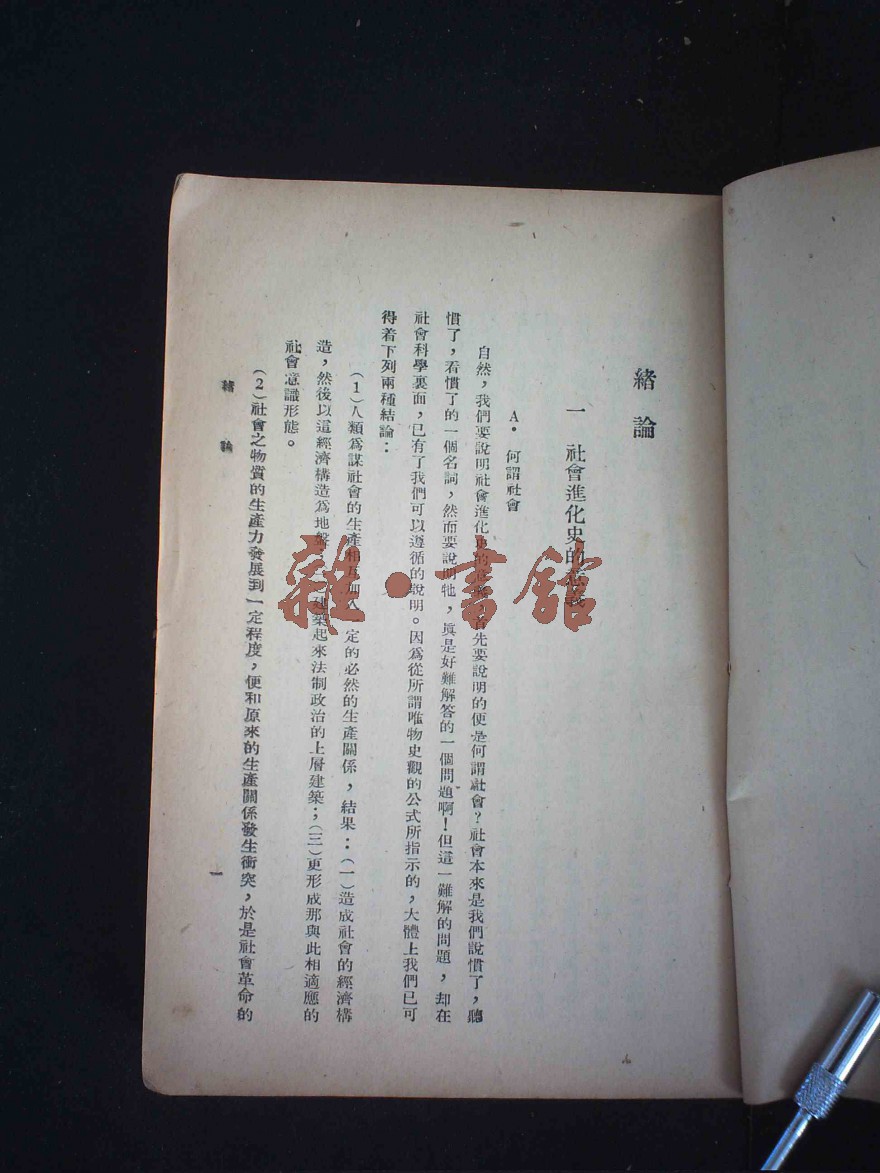 緒論
一　社會進化史的意義
A．何謂社會
自然，我們要說明社會進化史的意義，首先要說明的便是何謂社會？社會本來是我們說慣了，聽
慣了，看慣了的一個名詞，然而要說明牠，眞是好難解答的一個問題啊！但這一難解的問題，却在
社會科學裏面，已有了我們可以遵循的說明。因爲從所謂唯物史觀的公式所指示的，大體上我們已可
得着下列兩種結論：
（1）人類爲謀社會的生產相互加入一定的必然的生產關係，結果：（一）造成社會的經濟構
造，然後以這經濟構造爲地盤，建築起來法制政治的上層建築；（三）更形成那與此相適應的
社會意識形態。
（2）社會之物質的生產力發展到一定程度，便和原來的生產關係發生衝突，於是社會革命的
緒論
一
雜·書館